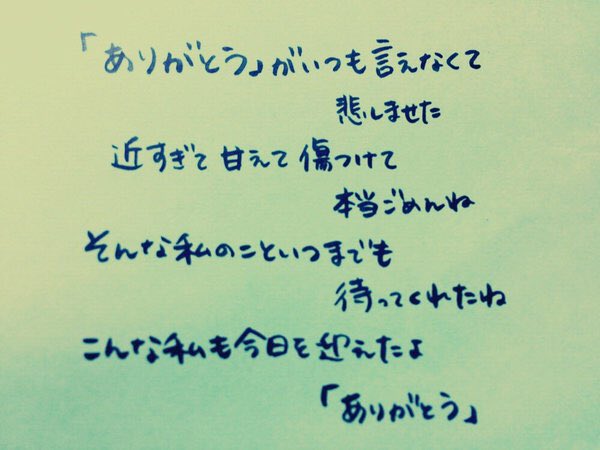 「ありがとう」がいつも言えなくて
悲しませた
近すぎて甘えて傷つけて
本当ごめんね
そんな私のこといつまでも
待ってくれたね
こんな私も今日を迎えたよ
「ありがとう」